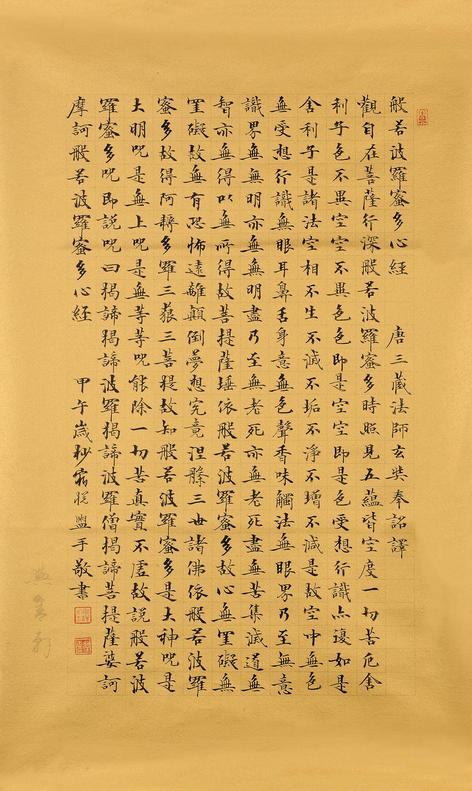 般若波羅蜜多心經 唐三藏法師玄奘奉詔譯
觀自在菩薩行深般若波羅蜜多時照見五蘊皆空度一切苦厄舍
利子色不異空空不異色色即是空空即是色受想行識亦復如是
舍利子是諸法空相不生不滅不垢不淨不增不減是故空中無色
無受想行識無眼耳鼻舌身意無色聲香味觸法無眼界乃至無意
識界無無明亦無無明盡乃至無老死亦無老死盡無苦集滅道無
智亦無得以無所得故菩提薩埵依般若波羅蜜多故心無罣礙無
罣礙故無有恐怖遠離顛倒夢想究竟涅槃三世諸佛依般若波羅
蜜多故得阿耨多羅三藐三菩提故知般若波羅蜜多是大神呪是
大明呪是無上呪是無等等呪能除一切苦真實不虛故說般若波
羅蜜多呪即說呪曰揭諦揭諦波羅揭諦波羅僧揭諦菩提薩婆訶
摩訶般若波羅蜜多心經 甲午歲杪 盥手敬書